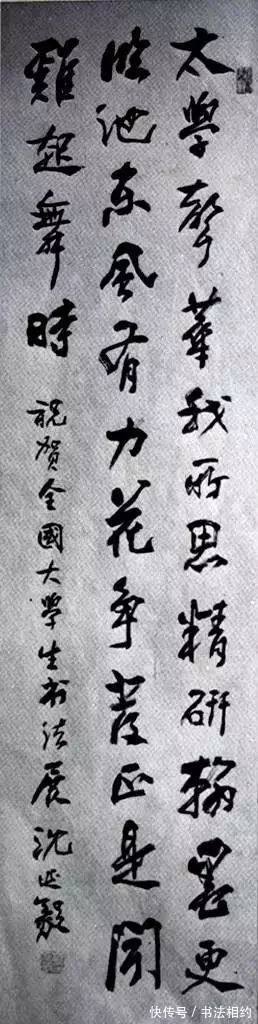 太學聲華我所思精研翰墨更
臨池东風有力花争發正是聞
雞起舞時
祝贺全國大学生书法展 沈延毅
快传号 / 书法相约